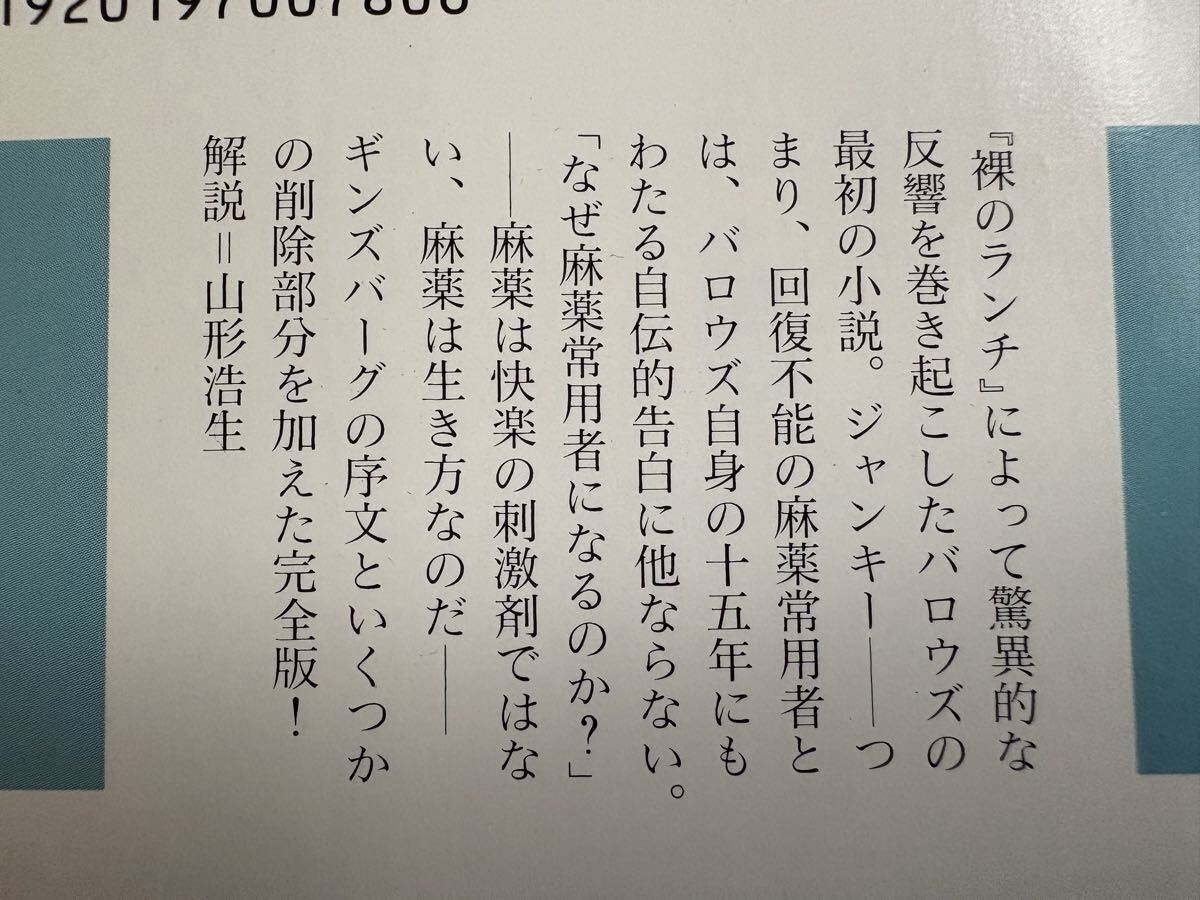 1920197007806
『裸のランチ』によって驚異的な
反響を巻き起こしたバロウズの
最初の小説。ジャンキー――つ
まり、回復不能の麻薬常用者と
は、バロウズ自身の十五年にも
わたる自伝的告白に他ならない。
「なぜ麻薬常用者になるのか?」
――麻薬は快楽の刺激剤ではな
い、麻薬は生き方なのだ――
ギンズバーグの序文といくつか
の削除部分を加えた完全版!
解説=山形浩生